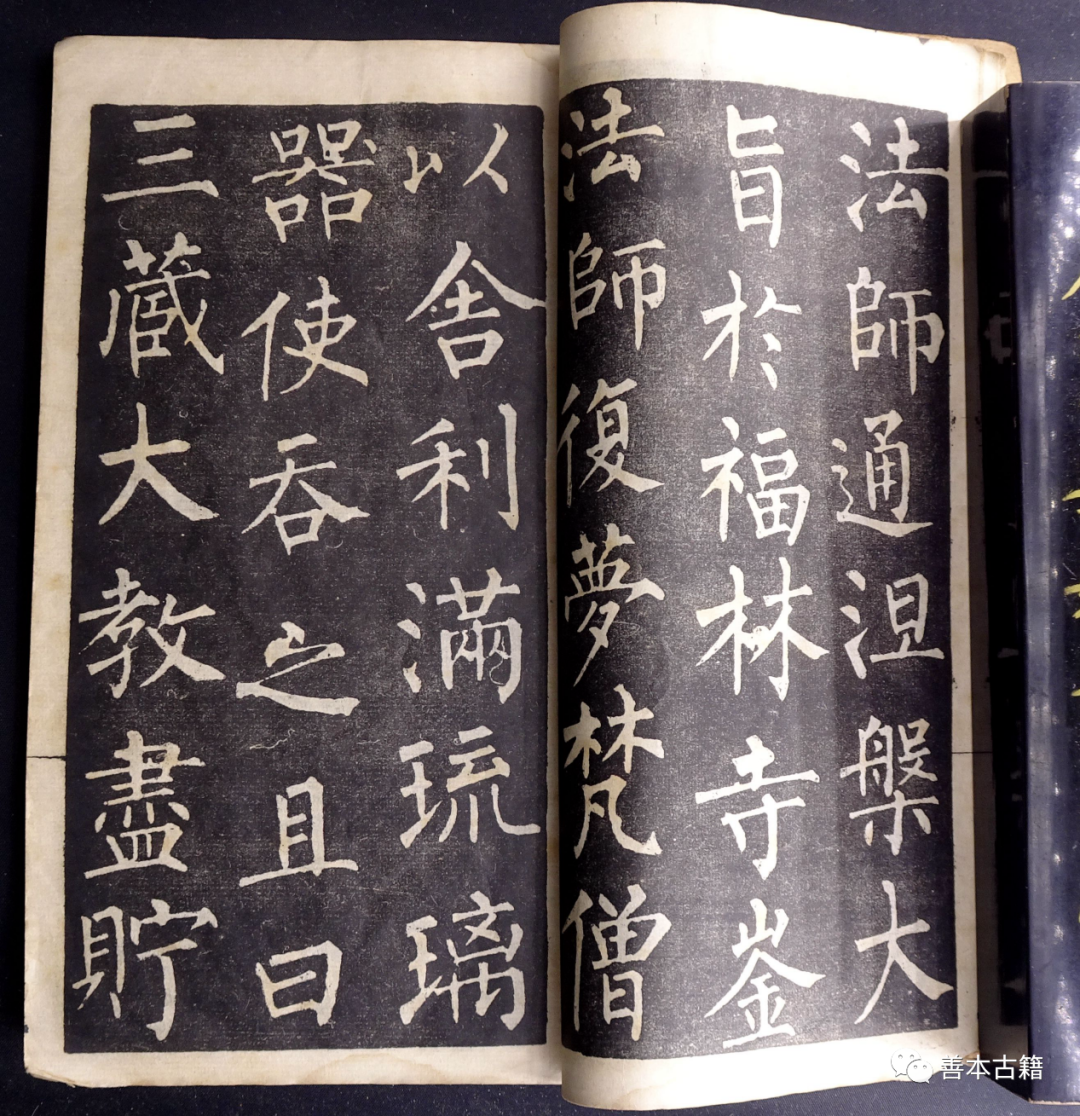 法師通涅槃大
旨於福林寺崟
法師復夢梵僧
以舍利滿琉璃
器使吞之且曰
三藏大教盡貯
善本古籍